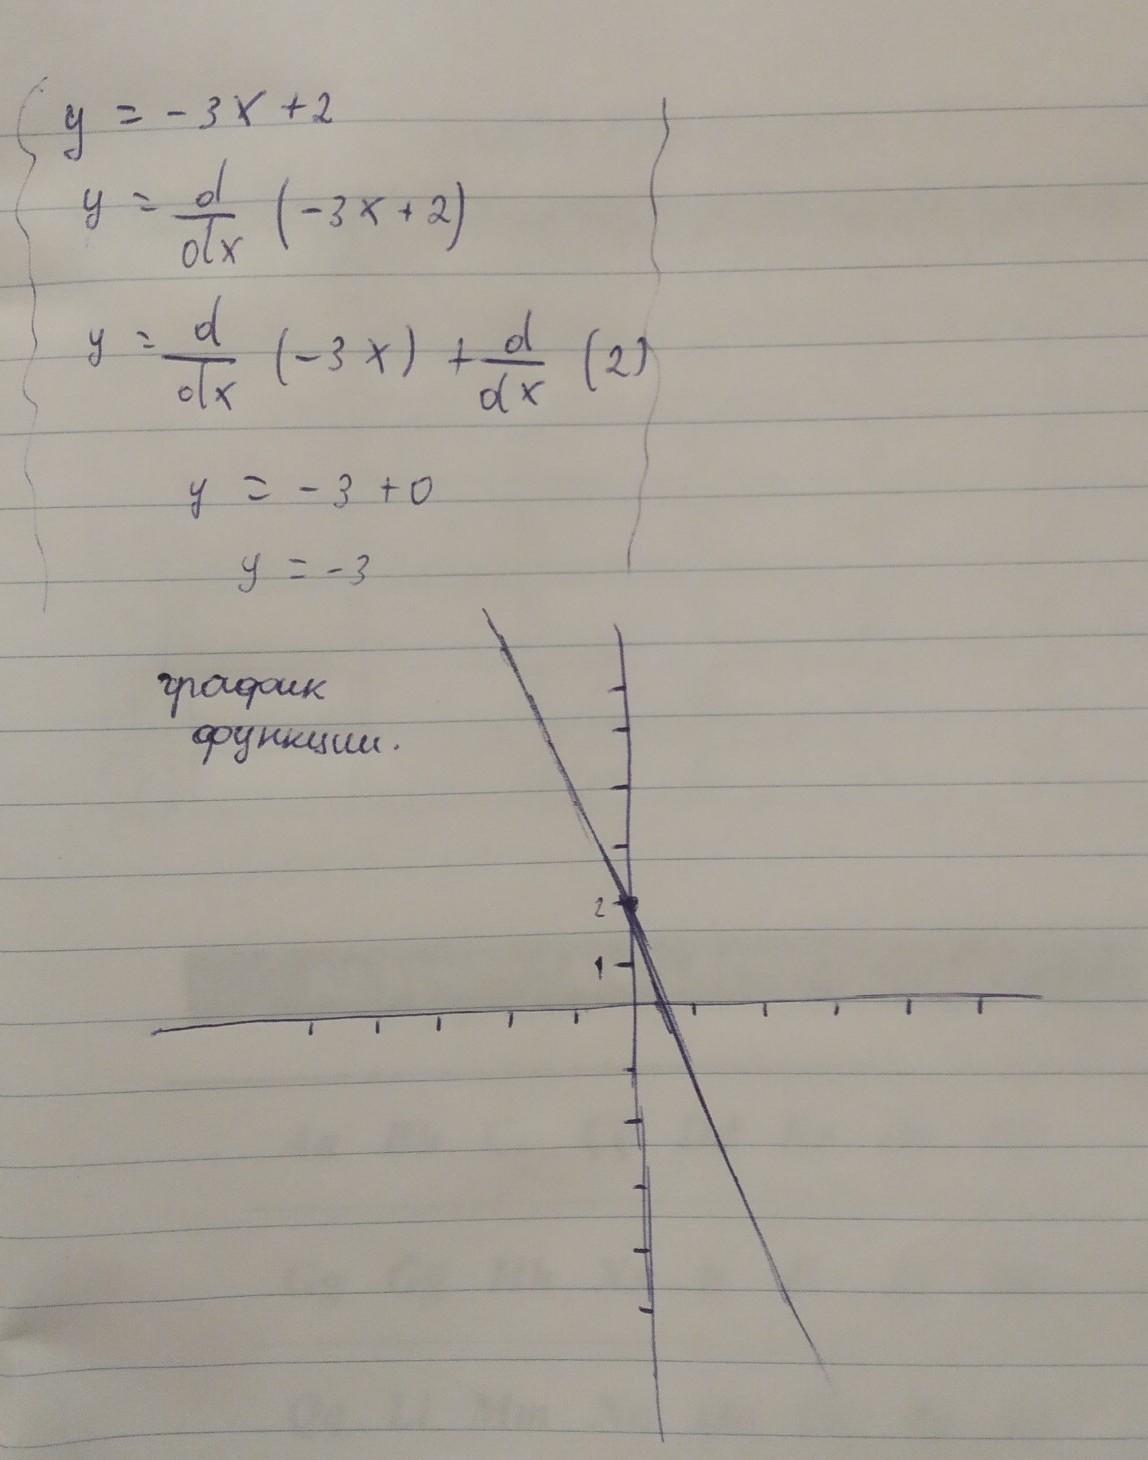 y = -3x + 2
y = d/dx (-3x + 2)
y = d/dx (-3x) + d/dx (2)
y = -3 + 0
y = -3
график
функции.
2
1